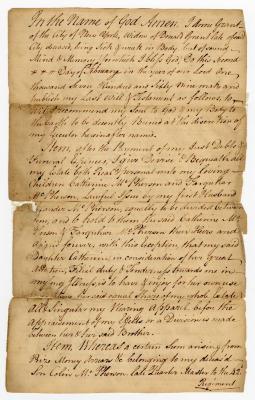 In the Name of God, Amen. I Ann Grant
of the City of New York, Widow of Grant late of said
City deceased, being Sick & weak in Body, but of sound
Mind & Memory, for which I bless God, Do this second
Day of February in the year of our Lord One
thousand Seven Hundred and Sixty Nine make and
publish my Last Will & Testament as follows, to
wit. I recommend my Soul to God & my Body to
the Earth to be decently Buried at the discretion of
my Executor hereinafter named.
Item, after the Payment of my Just Debts &
Funeral Expences, I give Devise & Bequeath all
my Estate both Real & Personal unto my loving
Children Catharine McPherson and Farquhar
McPherson, Lawful by my first Husband
McPherson equally to be divided between
them, and to hold to them the said Catharine Mc
Pherson & Farquhar McPherson their Heirs and
Assigns forever, with this exception that my said
Daughter Catharine in consideration of her Great
affection, Filial duty & Tenderness towards me in
my illness, is to have & enjoy for her own use
her said equal Share of my whole Estate
all & Singular my Wearing Apparel before the
appraisement of my Effects or a Division is made
between her & her said Brother.
Item, Whereas a certain Sum arising from
Prize Money Arrears & belonging to my deceas'd
Son Colin McPherson late Quarter Master to the 42d
Regiment